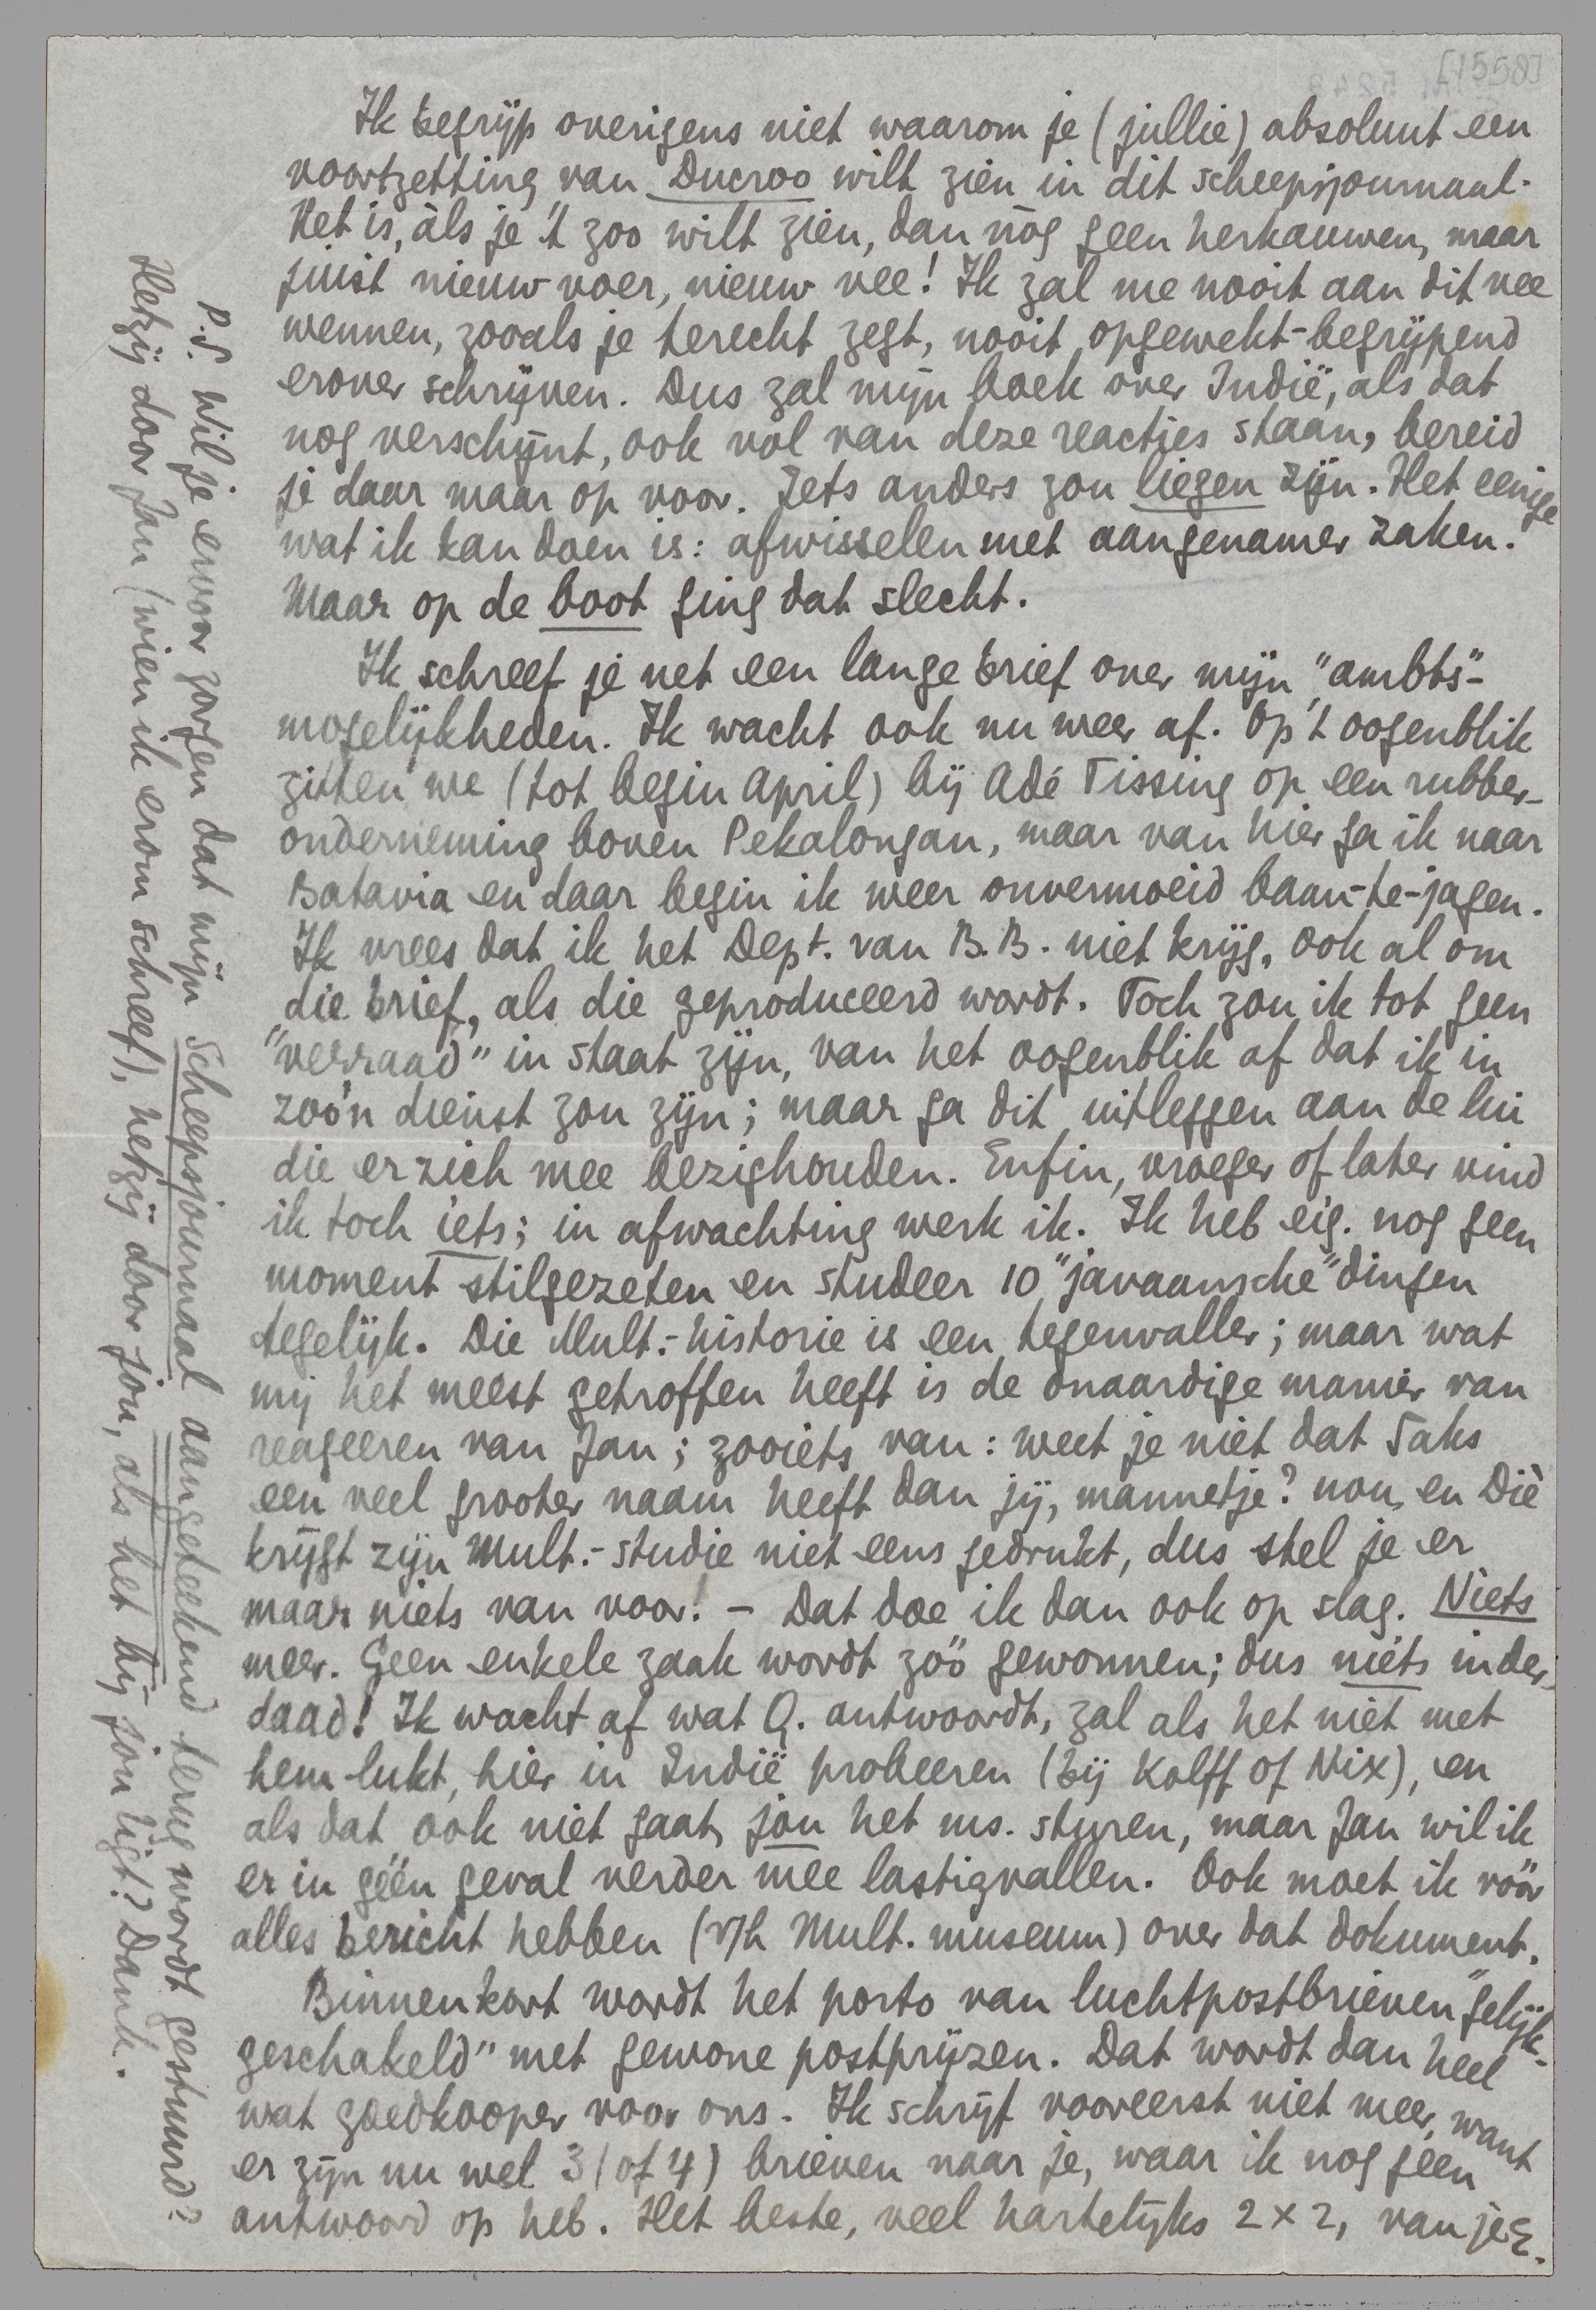 [1558]
Ik begrijp overigens niet waarom je (jullie) absoluut een
voortzetting van Ducroo wilt zien in dit scheepsjournaal.
Het is, àls je 't zoo wilt zien, dan nòg geen herkauwen, maar
juist nieuw voer, nieuw vee! Ik zal me nooit aan dit vee
wennen, zooals je terecht zegt, nooit opgewekt-begrijpend
erover schrijven. Dus zal mijn boek over Indië, als dat
nog verschijnt, ook vol van deze reactjes staan, bereid
je daar maar op voor. Iets anders zou liegen zijn. Het eenige
wat ik kan doen is: afwisselen met aangenamer zaken.
Maar op de boot ging dat slecht.
Ik schreef je net een lange brief over mijn "ambts"-
mogelijkheden. Ik wacht ook nu weer af. Op 't oogenblik
zitten we (tot begin April) bij Adé Tissing op een rubber-
onderneming boven Pekalongan, maar van hier ga ik naar
Batavia en daar begin ik weer onvermoeid baan-te-jagen.
Ik vrees dat ik het Dept. van B.B. niet krijg, ook al om
die brief, als die geproduceerd wordt. Toch zou ik tot geen
"verraad" in staat zijn, van het oogenblik af dat ik in
zoo'n dienst zou zijn; maar ga dit uitleggen aan de lui
die er zich mee bezighouden. Enfin, vroeger of later vind
ik toch iets; in afwachting werk ik. Ik heb eig. nog geen
moment stilgezeten en studeer 10 "javaansche" dingen
tegelijk. Die Mult.-historie is een tegenvaller; maar wat
mij het meest getroffen heeft is de onaardige manier van
reageeren van Jan; zooiets van: weet je niet dat Saks
een veel grooter naam heeft dan jij, mannetje? nou, en Diè
krijgt zijn Mult.-studie niet eens gedrukt, dus stel je er
maar niets van voor! – Dat doe ik dan ook op slag. Niets
meer. Geen enkele zaak wordt zóó gewonnen; dus niets inder-
daad! Ik wacht af wat Q. antwoordt, zal als het niet met
hem lukt, hier in Indië probeeren (bij Kolff of Nix), en
als dat ook niet gaat, jou het ms. sturen, maar Jan wil ik
er in géén geval verder mee lastigvallen. Ook moet ik vóór
alles bericht hebben (v/h Mult. museum) over dat dokument.
Binnenkort wordt het porto van luchtpostbrieven "gelijk-
geschakeld" met gewone postprijzen. Dat wordt dan heel
wat goedkooper voor ons. Ik schrijf vooreerst niet meer, want
er zijn nu wel 3 (of 4) brieven naar je, waar ik nog geen
antwoord op heb. Het beste, veel hartelijks 2 × 2, van je E.
P.S. Wil je ervoor zorgen dat mijn Scheepsjournaal aangeteekend terug wordt gestuurd?
Hetzij door Jan (wien ik erom schreef), hetzij door jou, als het bij jou ligt? Dank.